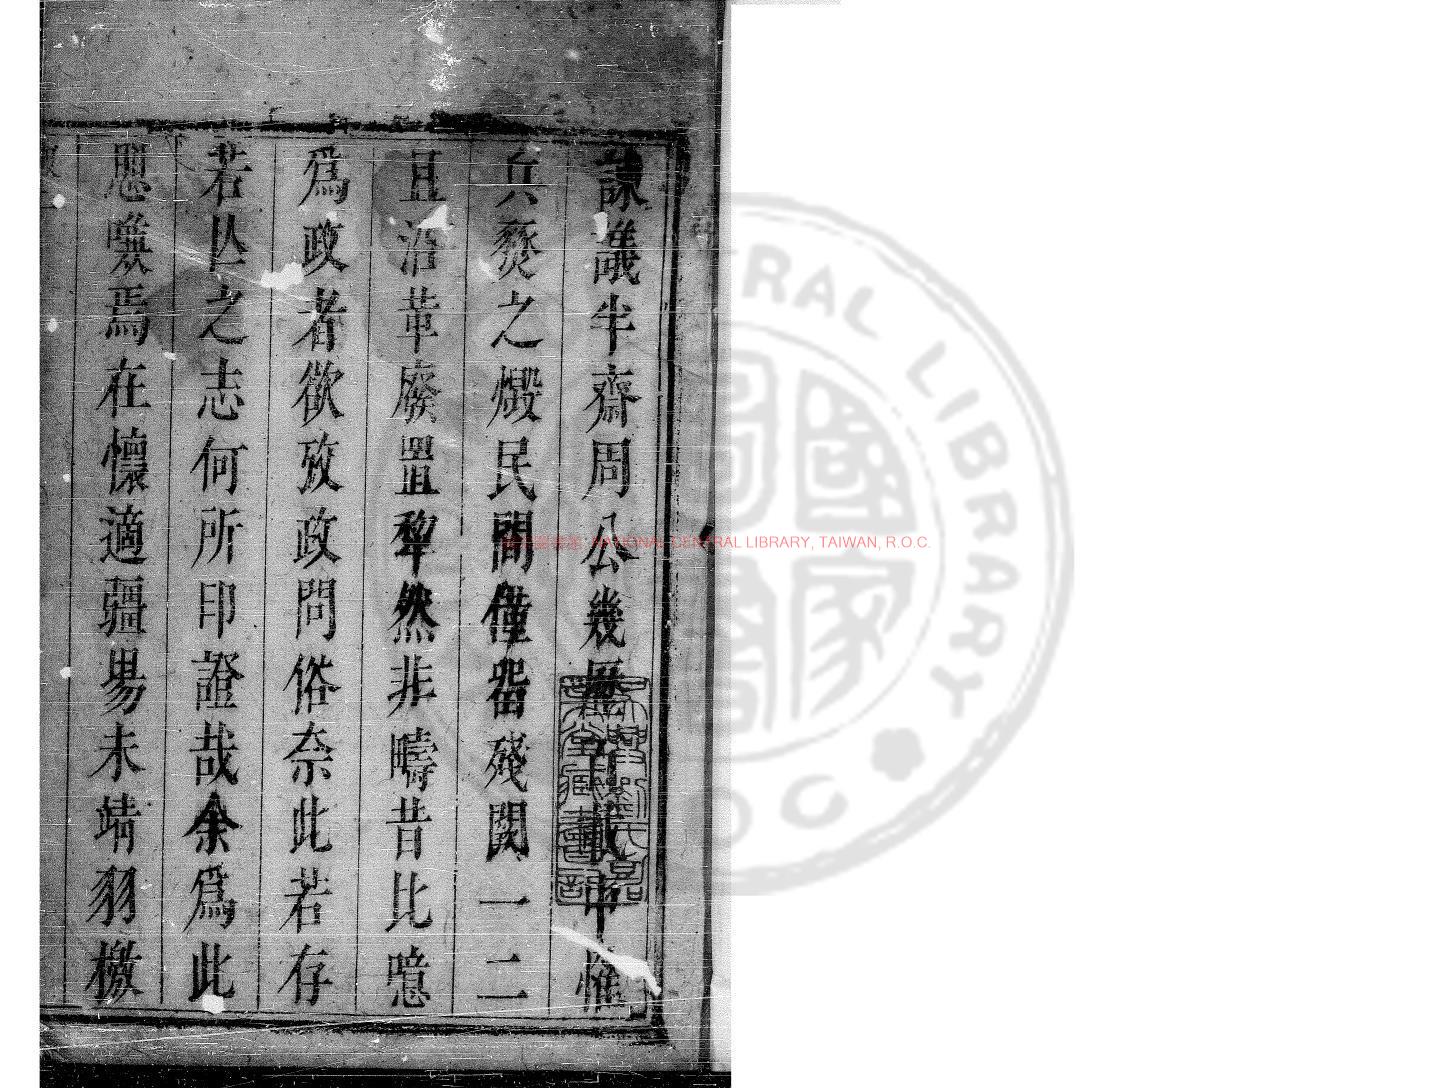 諫議半齋周公幾歷十載中惟
兵燹之燬民間僅畱殘闕一二
且沿革廢置犂然非疇昔比噫
爲政者欲攷政問俗奈此若存
若亾之志何所印證哉余爲此
恖嘆焉在懷適疆場未靖羽檄
NATIONAL CENTRAL LIBRARY, TAIWAN, R.O.C.